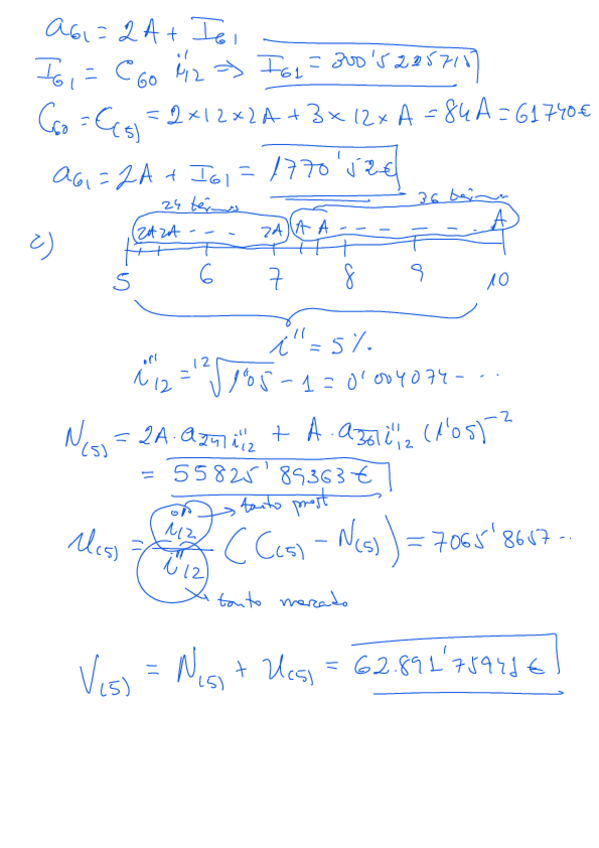 a₆₁ = 2A + I₆₁
I₆₁ = C₆₀ i''₁₂ ⇒ I₆₁ = 300'5225715
C₆₀ = C₍₅₎ = 2×12×2A + 3×12×A = 84A = 61740€
a₆₁ = 2A + I₆₁ = 1770'52€
24 términos 36 términos
c) 2A 2A - - - 2A A A - - - - - - A
5 6 7 8 9 10
i''' = 5%.
i'''₁₂ = ¹²√1'05 - 1 = 0'004074 - ...
N₍₅₎ = 2A·a₂₄┐i'''₁₂ + A·a₃₆┐i'''₁₂ (1'05)⁻²
= 55825'89363€
tanto prest
U₍₅₎ = i''₁₂ / i'''₁₂ (C₍₅₎ - N₍₅₎) = 7065'8657..
tanto mercado
V₍₅₎ = N₍₅₎ + U₍₅₎ = 62.891'75941€